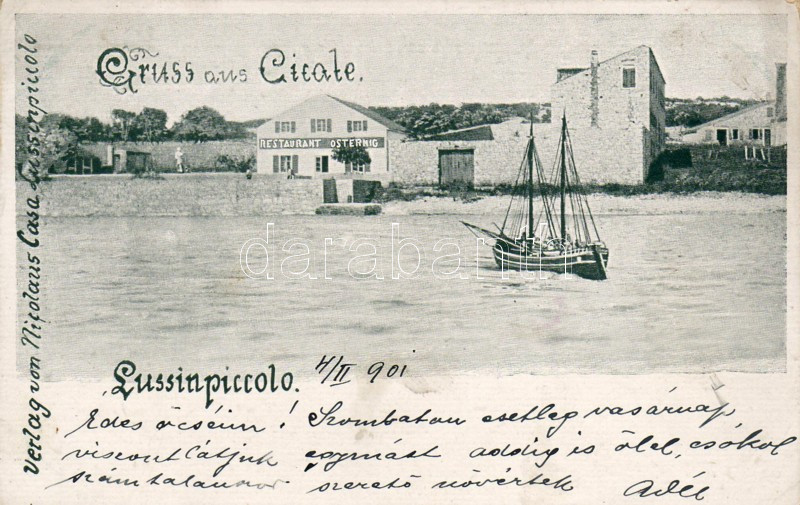 Gruss aus Cicale.
RESTAURANT OSTERNIG
Verlag von Nicolaus Casa Lussinpiccolo
darabanth
Lussinpiccolo.
4/II 901
Édes öcséim! Szombaton esetleg vasárnap
viszont látjuk egymást addig is ölel, csókol
számtalanszor szerető nővértek Adél